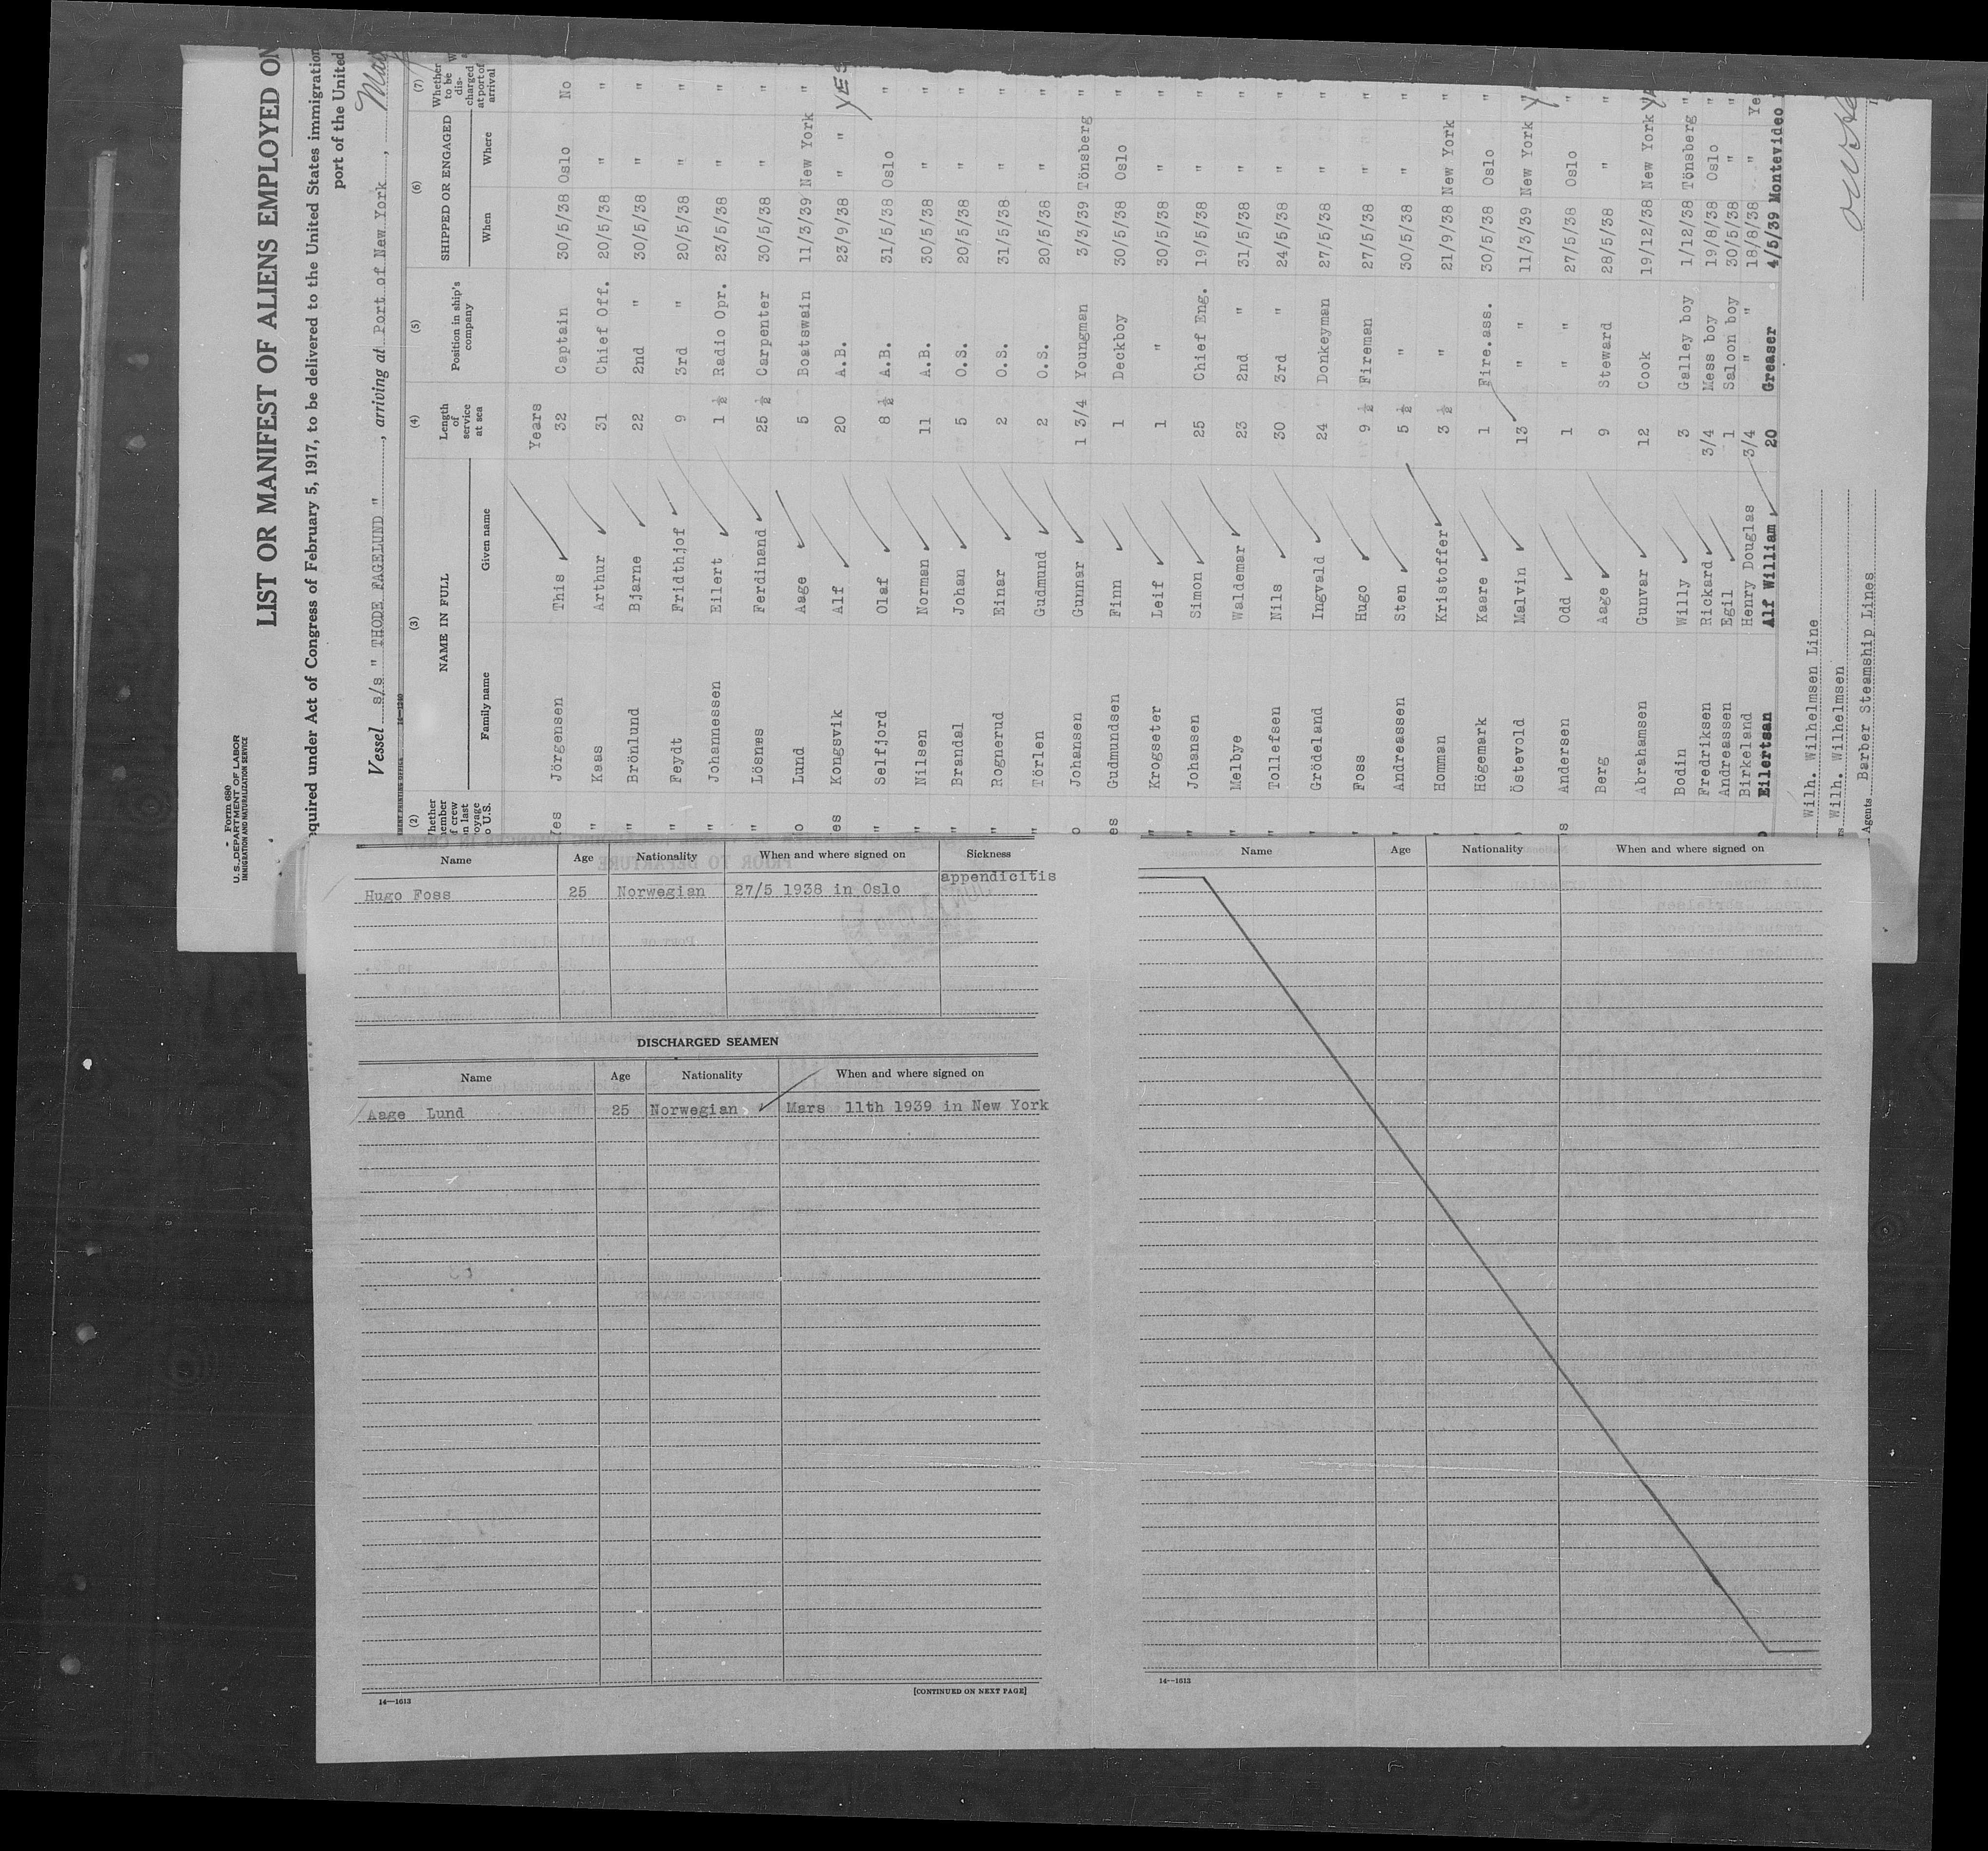 Form 680
U. S. DEPARTMENT OF LABOR
IMMIGRATION AND NATURALIZATION SERVICE
LIST OR MANIFEST OF ALIENS EMPLOYED ON
equired under Act of Congress of February 5, 1917, to be delivered to the United States immigration
port of the United
Vessel s/s " THODE FAGELUND ", arriving at Port of New York,
(2) (3) (4) (5) (6) (7)
NAME IN FULL Length of service at sea Position in ship's company SHIPPED OR ENGAGED Whether to be discharged at port of arrival
Family name Given name When Where
Years
es Jörgensen This 32 Captain 30/5/38 Oslo No
" Kaas Arthur 31 Chief Off. 20/5/38 " "
" Brönlund Bjarne 22 2nd " 30/5/38 " "
" Feydt Fridthjof 9 3rd " 20/5/38 " "
" Johannessen Eilert 1 ½ Radio Opr. 23/5/38 " "
" Lösnes Ferdinand 25 ½ Carpenter 30/5/38 " "
o Lund Aage 5 Boatswain 11/3/39 New York "
es Kongsvik Alf 20 A.B. 23/9/38 " " YES
" Selfjord Olaf 8 ½ A.B. 31/5/38 Oslo "
" Nilsen Norman 11 A.B. 30/5/38 " "
" Brandal Johan 5 O.S. 20/5/38 " "
" Rognerud Einar 2 O.S. 31/5/38 " "
" Törlen Gudmund 2 O.S. 20/5/38 " "
o Johansen Gunnar 1 3/4 Youngman 3/3/39 Tönsberg "
es Gudmundsen Finn 1 Deckboy 30/5/38 Oslo "
" Krogseter Leif 1 " 30/5/38 " "
" Johansen Simon 25 Chief Eng. 19/5/38 " "
" Melbye Waldemar 23 2nd " 31/5/38 " "
" Tollefsen Nils 30 3rd " 24/5/38 " "
" Grödeland Ingvald 24 Donkeyman 27/5/38 " "
" Foss Hugo 9 ½ Fireman 27/5/38 " "
" Andreassen Sten 5 ½ " 30/5/38 " "
" Homman Kristoffer 3 ½ " 21/9/38 New York "
" Högemark Kaare 1 Fire.ass. 30/5/38 Oslo "
" Östevold Malvin 13 " " 11/3/39 New York
s Andersen Odd 1 " " 27/5/38 Oslo "
Berg Aage 9 Steward 28/5/38 " "
Abrahamsen Gunvar 12 Cook 19/12/38 New York
Bodin Willy 3 Galley boy 1/12/38 Tönsberg "
Fredriksen Rickard 3/4 Mess boy 19/8/38 Oslo "
Andreassen Egil 1 Saloon boy 30/5/38 " "
Birkeland Henry Douglas 3/4 " " 18/8/38 " Ye
Eilertsen Alf William 20 Greaser 4/5/39 Montevideo
Wilh. Wilhelmsen Line
Wilh. Wilhelmsen
Agents Barber Steamship Lines
Name Age Nationality When and where signed on Sickness
Hugo Foss 25 Norwegian 27/5 1938 in Oslo appendicitis
DISCHARGED SEAMEN
Name Age Nationality When and where signed on
Aage Lund 25 Norwegian Mars 11th 1939 in New York
14—1613 [CONTINUED ON NEXT PAGE]
Name Age Nationality When and where signed on
14—1613